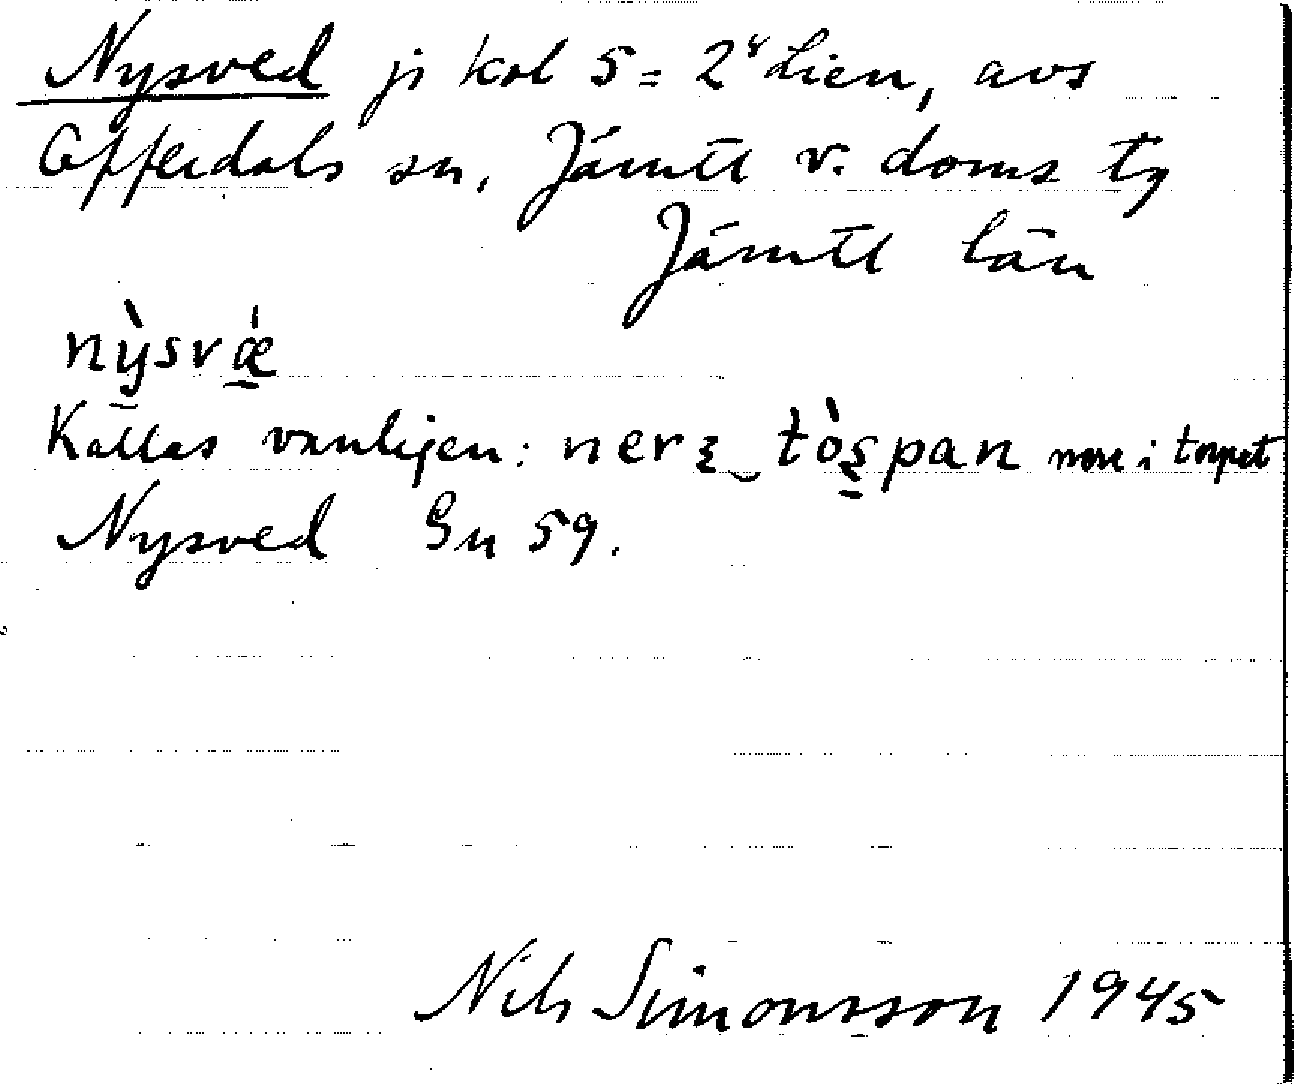 Nysved jr kol 5 = 2⁴ Lien, avs
Offerdals sn, Jämtl v. doms tg
Jämtl län
nỳsvǽ
Kallas vanligen: nerε‿tòspan nere i torpet
Nysved Gn 59.
Nils Simonsson 1945